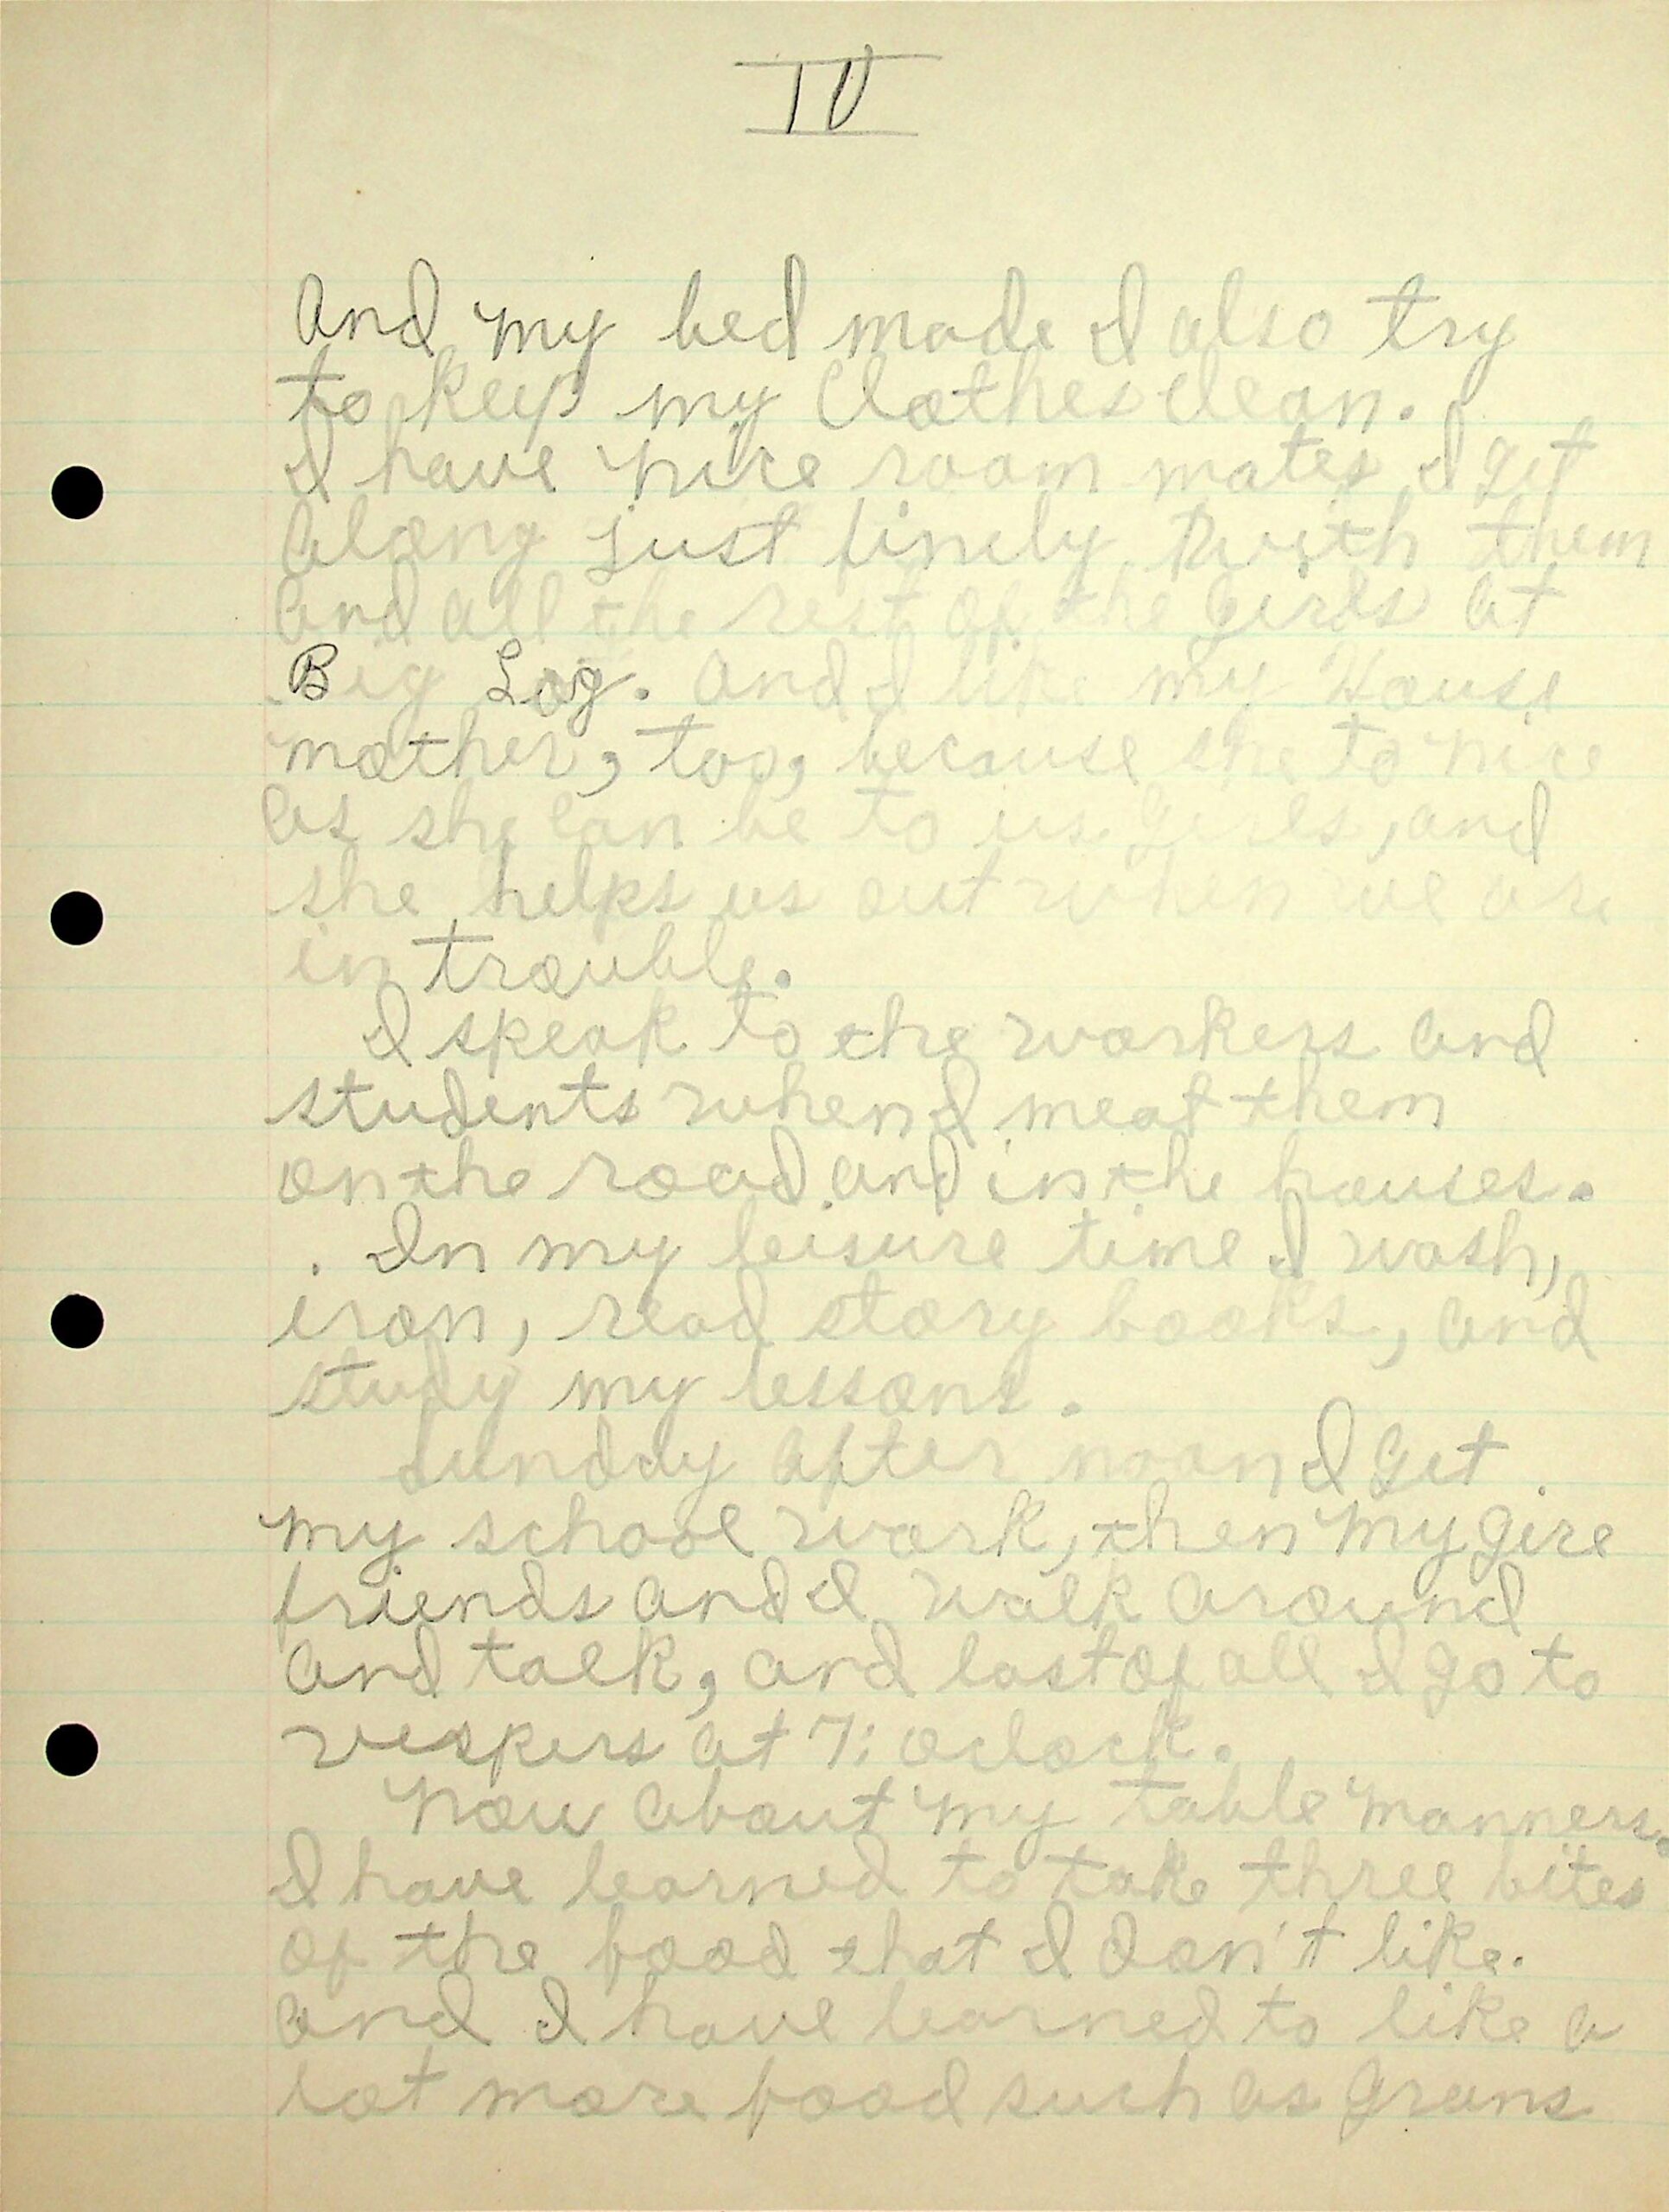 IV
And my bed made I also try
to keep my Clothes clean.
I have nice room mates I get
along just finely with them
and all the rest of the girls at
Big Log. and I like my House
mother, too, because she to nice
as she can be to us girls, and
she helps us out when we are
in trouble.
I speak to the workers and
students when I meat them
on the road and in the houses.
In my leisure time I wash,
iron, read story books, and
study my lessons.
Sunday after noon I get
my school work, then my girl
friends and I walk around
and talk, and last of all I go to
vespers at 7: oclock.
Now about my table manners.
I have learned to take three bites
of the food that I don't like.
and I have learned to like a
lot more food such as greens